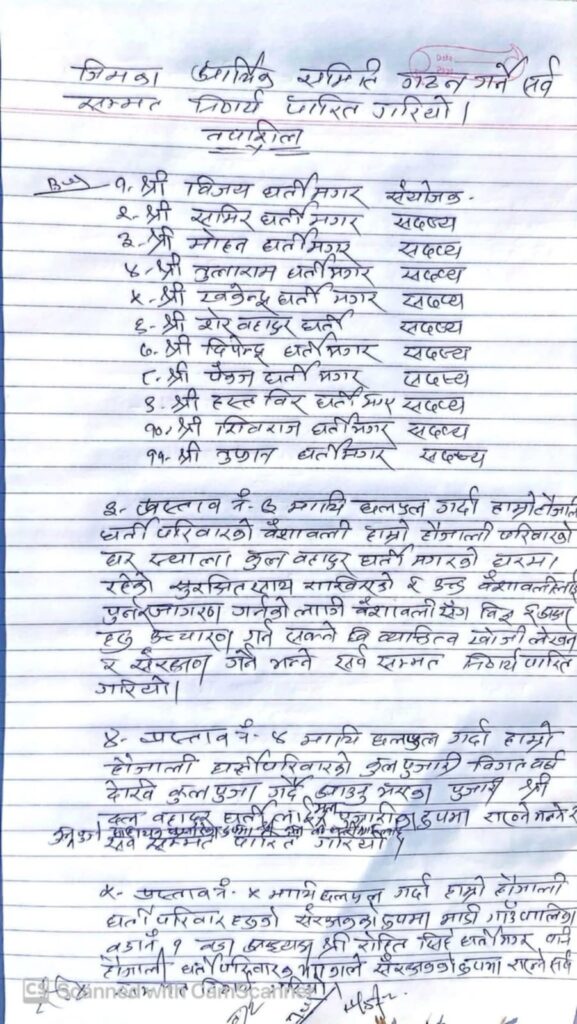 जिमका आर्थिक समिति गठन गर्ने सर्व
सम्मत निर्णय पारित गरियो।
तपशिल
१. श्री विजय घर्ती मगर संयोजक.
२. श्री समिर घर्ती मगर सदस्य
३. श्री मोहन घर्ती मगर सदस्य
४. श्री तुलाराम घर्ती मगर सदस्य
५. श्री खगेन्द्र घर्ती मगर सदस्य
६. श्री शेर बहादुर घर्ती सदस्य
७. श्री दिपेन्द्र घर्ती मगर सदस्य
८. श्री पंकज घर्ती मगर सदस्य
९. श्री हस्त विर घर्ती मगर सदस्य
१०. श्री शिवराज घर्ती मगर सदस्य
११. श्री घर्ती मगर सदस्य
३- प्रस्ताव नं- ३ माथि छलफल गर्दा हाम्रो हौजाली
घर्ती परिवारको वंशावली हाम्रो हौजाली परिवारको
घर बहादुर घर्ती मगरको घरमा
रहेको सुरक्षित साथ राखिएको र उक्त
पुर्नरजागरण गर्नको लागी वंशावली
उच्चारण गर्न सक्ने व्यक्तित्व खोजी लेखन
र संरक्षण गर्ने भन्ने सर्व सम्मत निर्णय पारित
गरियो।
४- प्रस्ताव नं- ४ माथि छलफल गर्दा हाम्रो
हौजाली घर्ती परिवारको कुल पुजारी विगत वर्ष
देखि कुल पुजा गर्दै आउनु भएका पुजारी श्री
दल बहादुर घर्ती लाई मुल पुजारीका रुपमा राख्ने भन्ने
सर्व सम्मत पारित गरियो।
५- प्रस्ताव नं- ५ माथि छलफल गर्दा हाम्रो हौजाली
घर्ती परिवार हरुको संरक्षकका रुपमा माडी गाउँपालिका
वडा नं १ वडा अध्यक्ष श्री रोहित सिंह घर्ती मगर
हौजाली घर्ती परिवारका संरक्षकको रुपमा राख्ने सर्व
सम्मत निर्णय गरियो।
CS Scanned with CamScanner